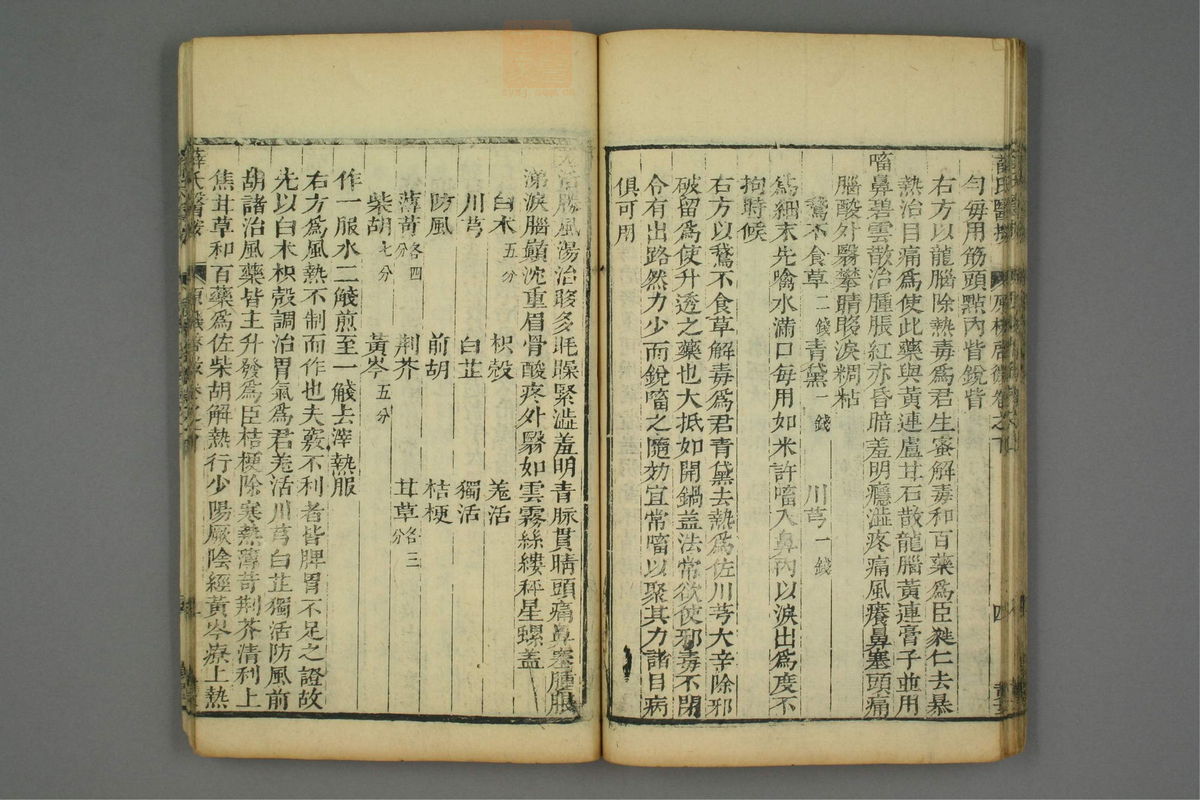 薛氏醫按
原機啓微卷之下
四
勻每用筋頭點內眥銳眥
右方以龍腦除熱毒爲君生蜜解毒和百藥爲臣蕤仁去暴
熱治目痛爲使此藥與黃連盧甘石散龍腦黃連膏子並用
㗜鼻碧雲散治腫脹紅赤昏暗羞明癮澁疼痛風癢鼻塞頭痛
腦酸外翳攀睛眵淚稠粘
鵞不食草二錢 青黛一錢 川芎一錢
爲細末先噙水滿口每用如米許㗜入鼻內以淚出爲度不
拘時候
右方以鵞不食草解毒爲君青黛去熱爲佐川芎大辛除邪
破留爲使升透之藥也大抵如開鍋盖法常欲使邪毒不閉
令有出路然力少而銳㗜之隨効宜常㗜以聚其力諸目病
俱可用
羌活勝風湯治眵多眊矂緊澁羞明青脉貫睛頭痛鼻塞腫脹
涕淚腦巔沈重眉骨酸疼外翳如雲霧絲縷秤星螺蓋
白朮五分 枳殼 羌活
川芎 白芷 獨活
防風 前胡 桔梗
薄荷各四分 荆芥 甘草各三分
柴胡七分 黃芩五分
作一服水二盞煎至一盞去滓熱服
右方爲風熱不制而作也夫竅不利者皆脾胃不足之證故
先以白朮枳殼調治胃氣爲君羌活川芎白芷獨活防風前
胡諸治風藥皆主升發爲臣桔梗除寒熱薄荷荆芥清利上
焦甘草和百藥爲佐柴胡解熱行少陽厥陰經黃芩療上熱
薛氏醫按
原機啓微卷之下